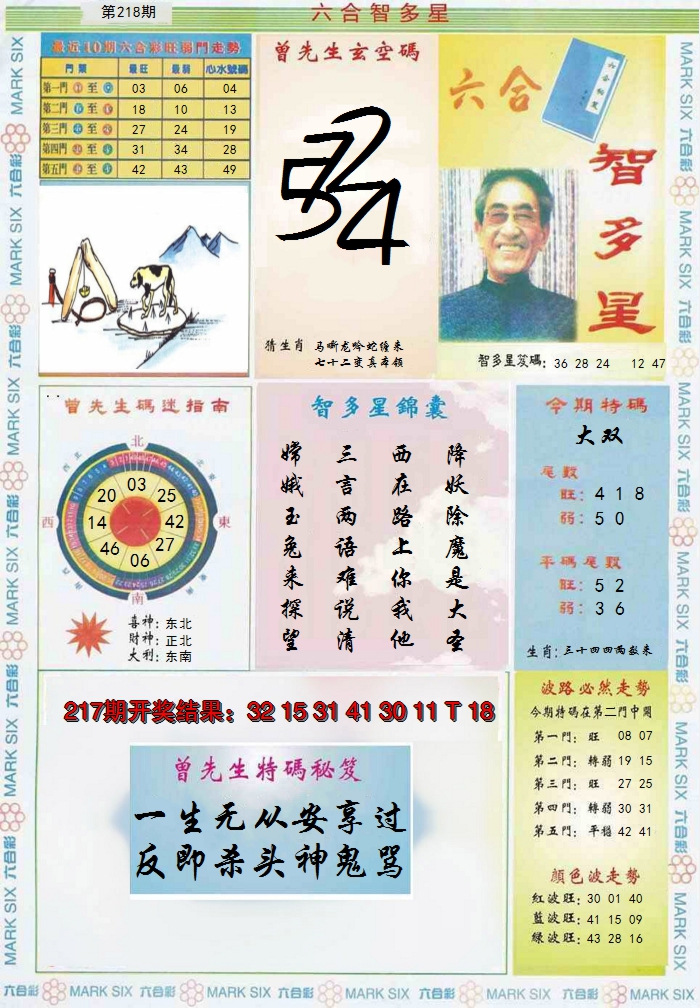 第218期
六合智多星
最近10期六合彩旺弱門走勢
門類 最旺 最弱 心水號碼
第一門 至 03 06 04
第二門 至 18 10 13
第三門 至 27 24 19
第四門 至 31 34 28
第五門 至 42 43 49
曾先生玄空碼
5724
猜生肖 马嘶龙吟蛇缠来
七十二变真本领
六合
智多星
智多星笈碼: 36 28 24 12 47
曾先生碼迷指南
北
西 東
南
03
20 25
14 42
46 27
06
喜神: 东北
財神: 正北
大利: 东南
智多星錦囊
降妖除魔是大圣
西在路上你我他
三言两语难说清
嫦娥玉兔来探望
今期特碼
大双
尾數
旺: 4 1 8
弱: 5 0
平碼尾數
旺: 5 2
弱: 3 6
生肖: 三十四四两数来
217期开奖结果: 32 15 31 41 30 11 T 18
曾先生特碼秘笈
一生无从安享过
反即杀头神鬼骂
波路必然走勢
今期特碼在第二門中開
第一門: 旺 08 07
第二門: 轉弱 19 15
第三門: 旺 27 25
第四門: 轉弱 30 31
第五門: 平穩 42 41
顏色波走勢
紅波旺: 30 01 40
藍波旺: 41 15 09
綠波旺: 43 28 16
MARK SIX 六合彩